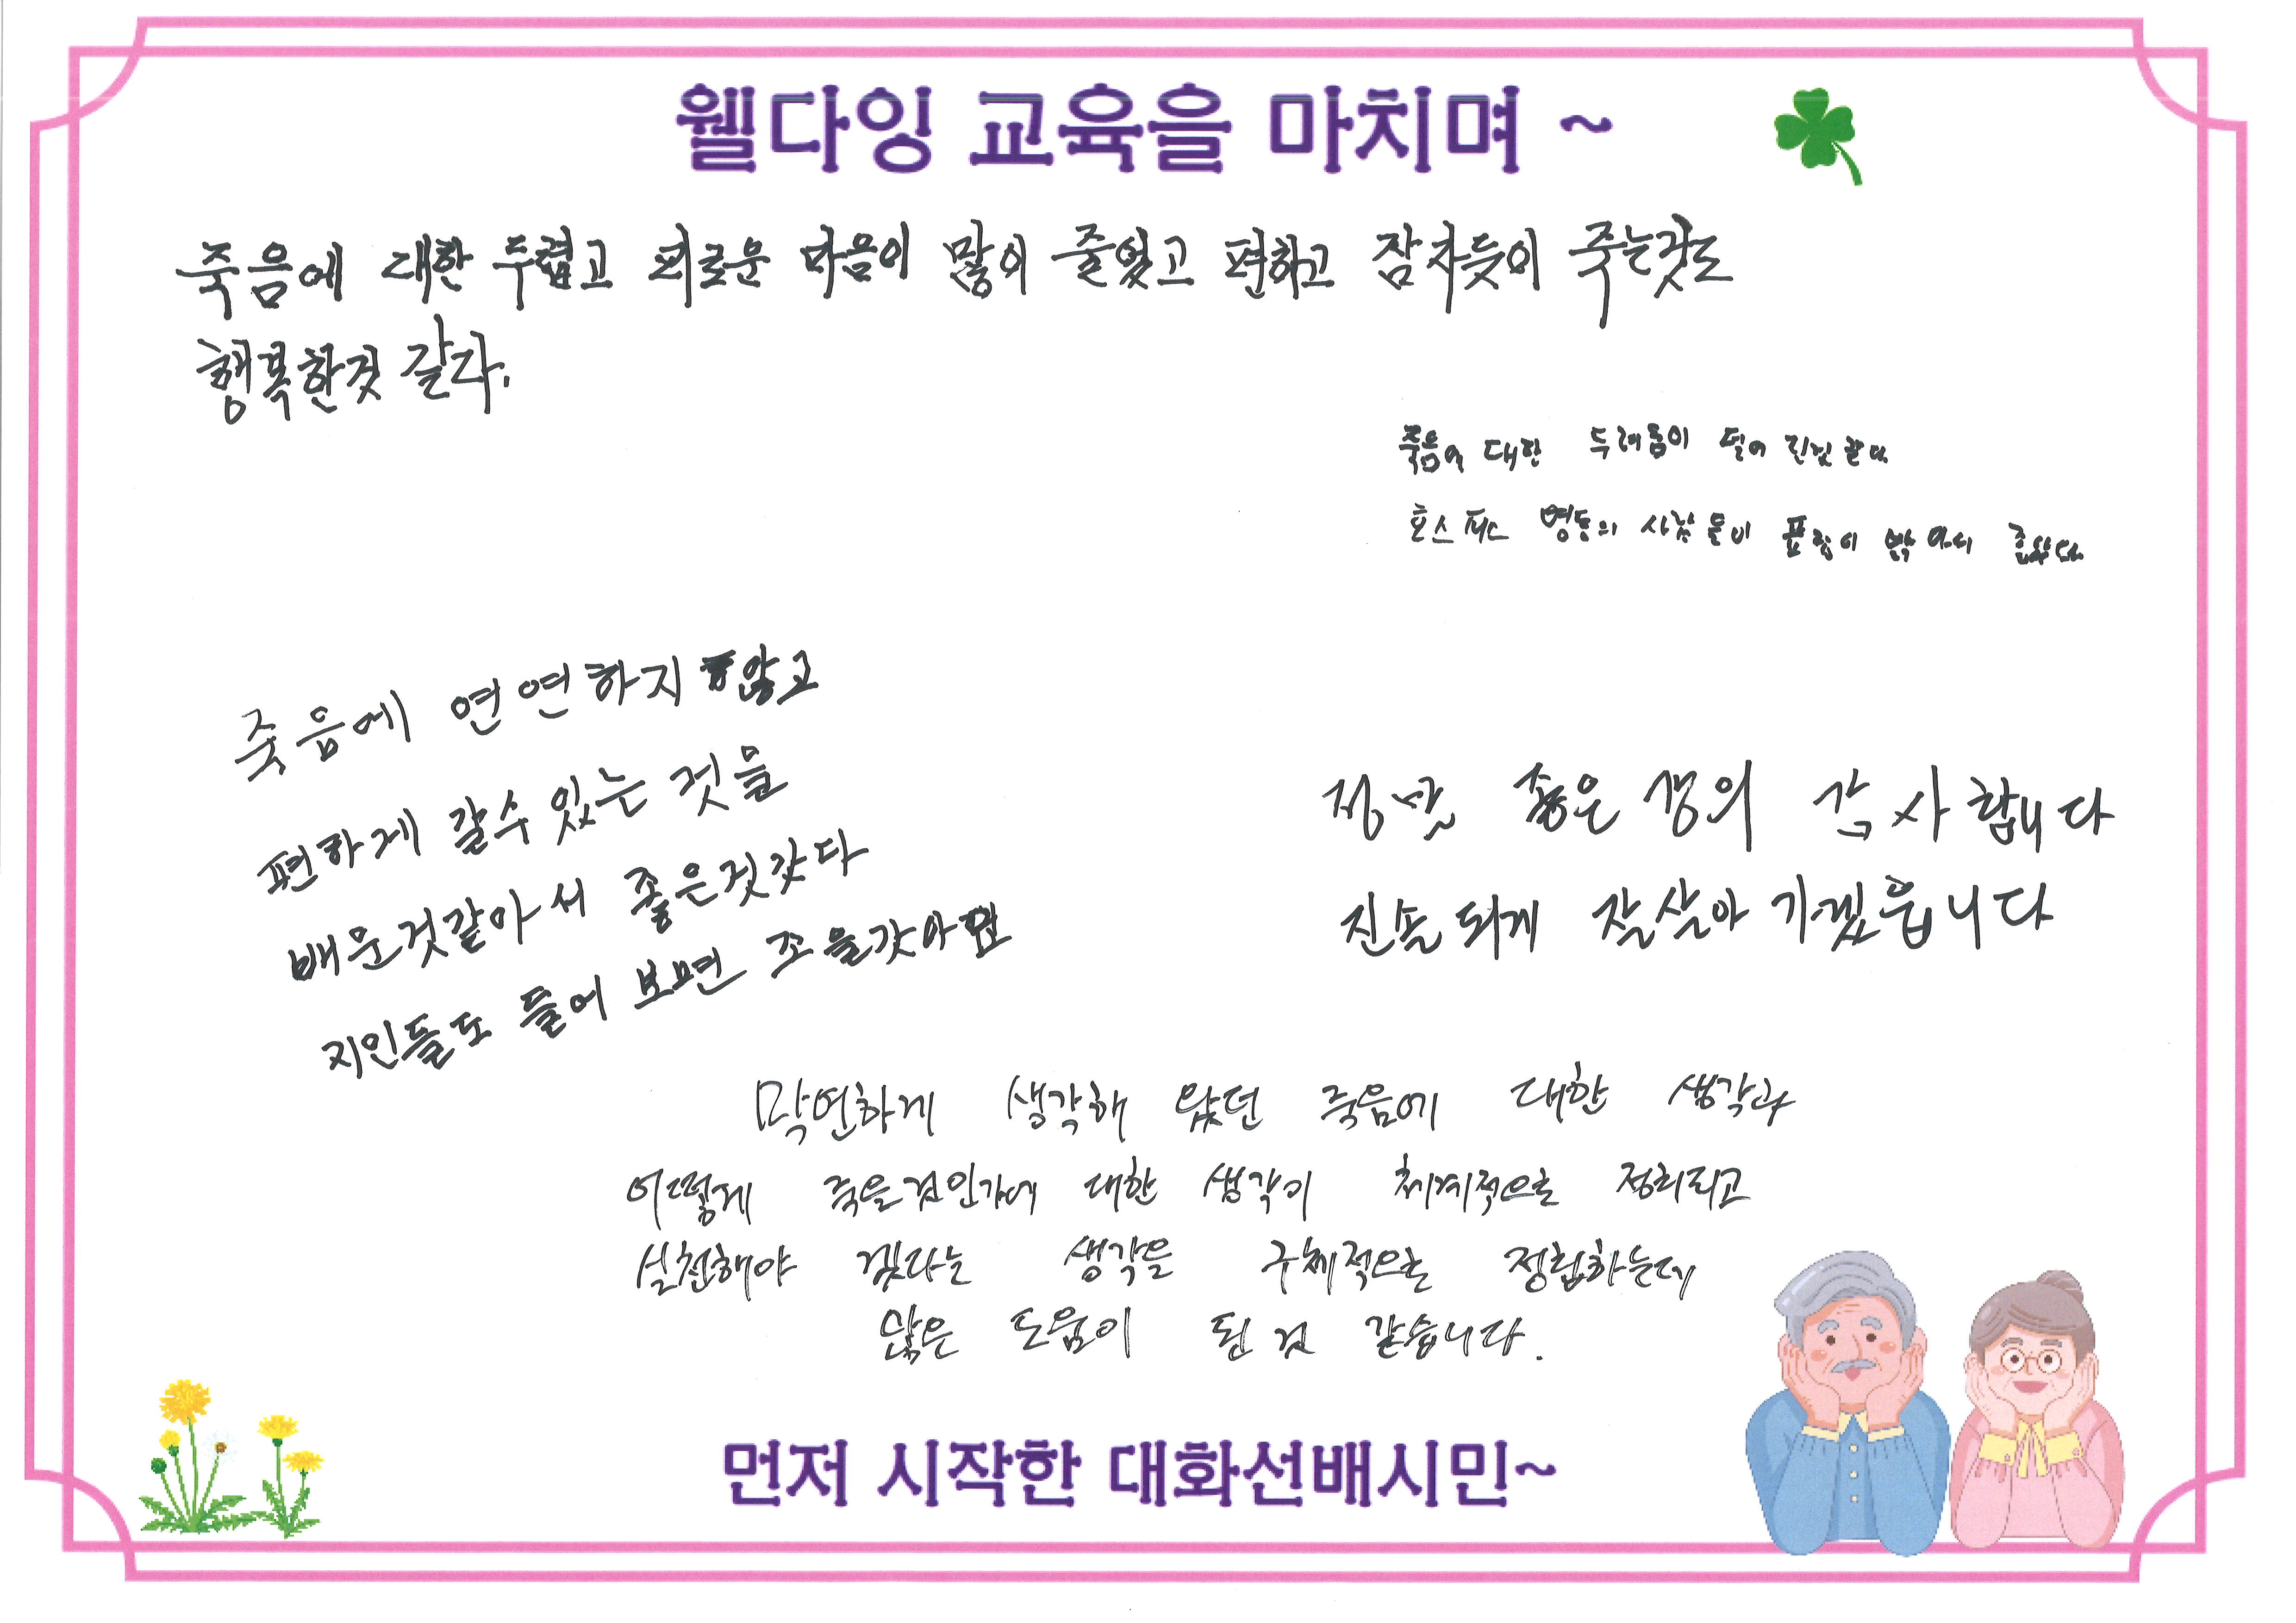 웰다잉 교육을 마치며 ~
죽음에 대한 두렵고 괴로운 마음이 많이 줄었고 편하고 잠자듯이 죽는것도
행복한것 같다.
죽음에 대한 두려움이 덜어 진것 같다
호스피스 병동의 사람들이 표정이 밝아서 좋았다
죽음에 연연하지 않고
편하게 갈수있는 것을
배운것같아서 좋은것갓다
지인들도 들어보면 조을갓아요
정말 좋은 강의 감사합니다
진솔되게 잘살아가겠읍니다
막연하게 생각해 왔던 죽음에 대한 생각과
어떻게 죽을것인가에 대한 생각이 체계적으로 정리되고
실천해야 겠다는 생각을 구체적으로 정립하는데
많은 도움이 된것 같습니다.
먼저 시작한 대화선배시민~